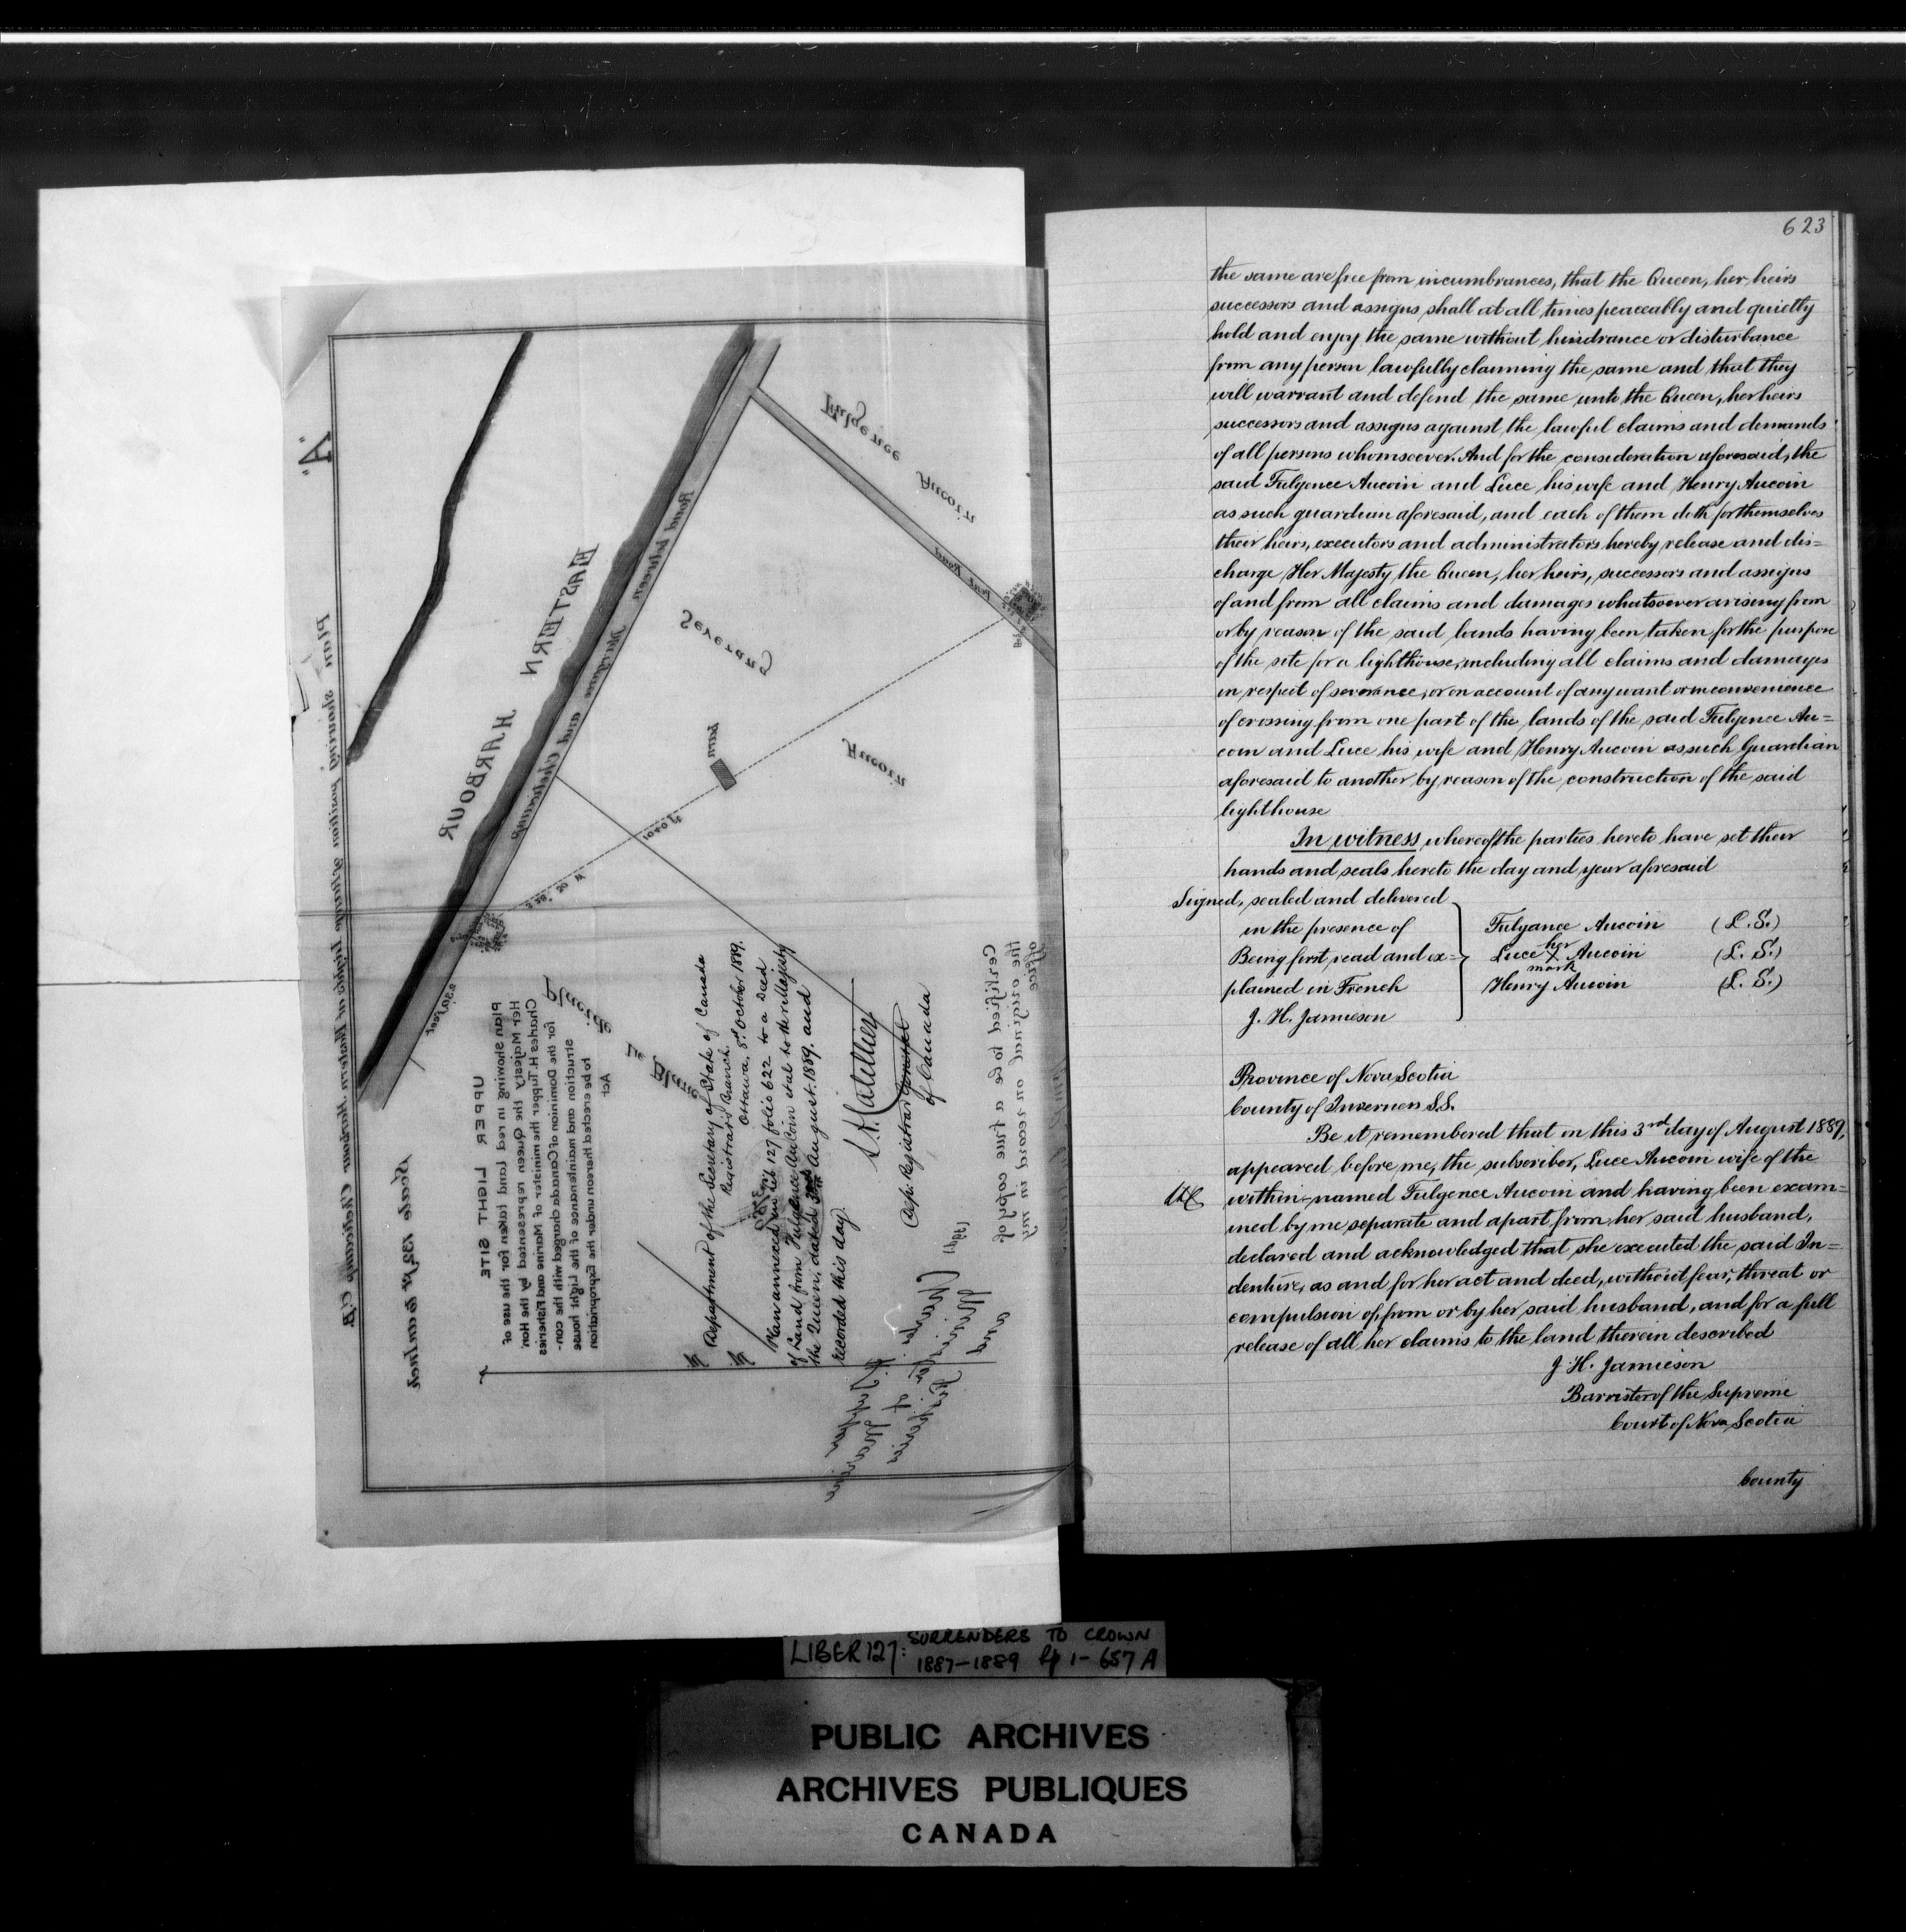 "A"
Plan showing position of Lights at Eastern Harbour Cheticamp C.B.
Scale 132 ft to an inch
EASTERN HARBOUR
Road between Margaree and Cheticamp
Fulgence Aucoin
Post Road
Severang
Aucoin
barn
1040 ft
850 feet
Placide Le Blanc
UPPER LIGHT SITE
Plan showing in red land taken for the use of
Her Majesty the Queen represented by the Hon.
Charles H. Tupper the minister of Marine and Fisheries
for the Dominion of Canada charged with the con-
struction and maintenance of the Light house
to be erected thereon under the Expropriation
Act
Department of the Secretary of State of Canada
Registrar's Branch.
Ottawa, 8th October 1889.
Plan annexed in Lib 127 folio 622 to a Deed
of Land from Fulgence Aucoin et al to Her Majesty
the Queen, dated August. 1889. and
recorded this day.
Dep. Registrar General
of Canada
Certified to be a true copy of
the original on record in my
office
(sgd) Charles H. Tupper
Minister of Marine
and Fisheries
623
the same are free from incumbrances, that the Queen, her heirs
successors and assigns shall at all times peaceably and quietly
hold and enjoy the same without hindrance or disturbance
from any person lawfully claiming the same and that they
will warrant and defend the same unto the Queen, her heirs
successors and assigns against the lawful claims and demands
of all persons whomsoever. And for the consideration aforesaid, the
said Fulgence Aucoin and Luce his wife and Henry Aucoin
as such guardian aforesaid, and each of them doth for themselves
their heirs, executors and administrators hereby release and dis=
charge Her Majesty the Queen, her heirs, successors and assigns
of and from all claims and damages whatsoever arising from
or by reason of the said lands having been taken for the purpose
of the site for a lighthouse, including all claims and damages
in respect of severance, or on account of any want or inconvenience
of crossing from one part of the lands of the said Fulgence Au=
coin and Luce his wife and Henry Aucoin as such Guardian
aforesaid to another by reason of the construction of the said
lighthouse
In witness whereof the parties hereto have set their
hands and seals hereto the day and year aforesaid
Signed, sealed and delivered
in the presence of
Being first read and ex=
plained in French
J. H. Jamieson
Fulgance Aucoin (L.S.)
Luce her X mark Aucoin (L.S.)
Henry Aucoin (L.S.)
Province of Nova Scotia
County of Inverness S.S.
Be it remembered that on this 3rd day of August 1889,
appeared before me, the subscriber, Luce Aucoin wife of the
within-named Fulgence Aucoin and having been exam=
ined by me separate and apart from her said husband,
declared and acknowledged that she executed the said In=
denture, as and for her act and deed, without fear, threat or
compulsion of, from or by her said husband, and for a full
release of all her claims to the land therein described
J. H. Jamieson
Barrister of the Supreme
Court of Nova Scotia
County
LIBER 127: SURRENDERS TO CROWN
1887-1889 pp 1-657A
PUBLIC ARCHIVES
ARCHIVES PUBLIQUES
CANADA